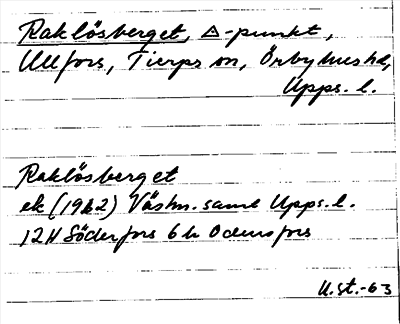 Raklösberget, △-punkt,
Ullfors, Tierps sn, Örbyhus hd,
Upps. l.
Raklösberget
ek (1962) Västm. samt Upps. l.
12H Söderfors 6h Odensfors
U.st.-63